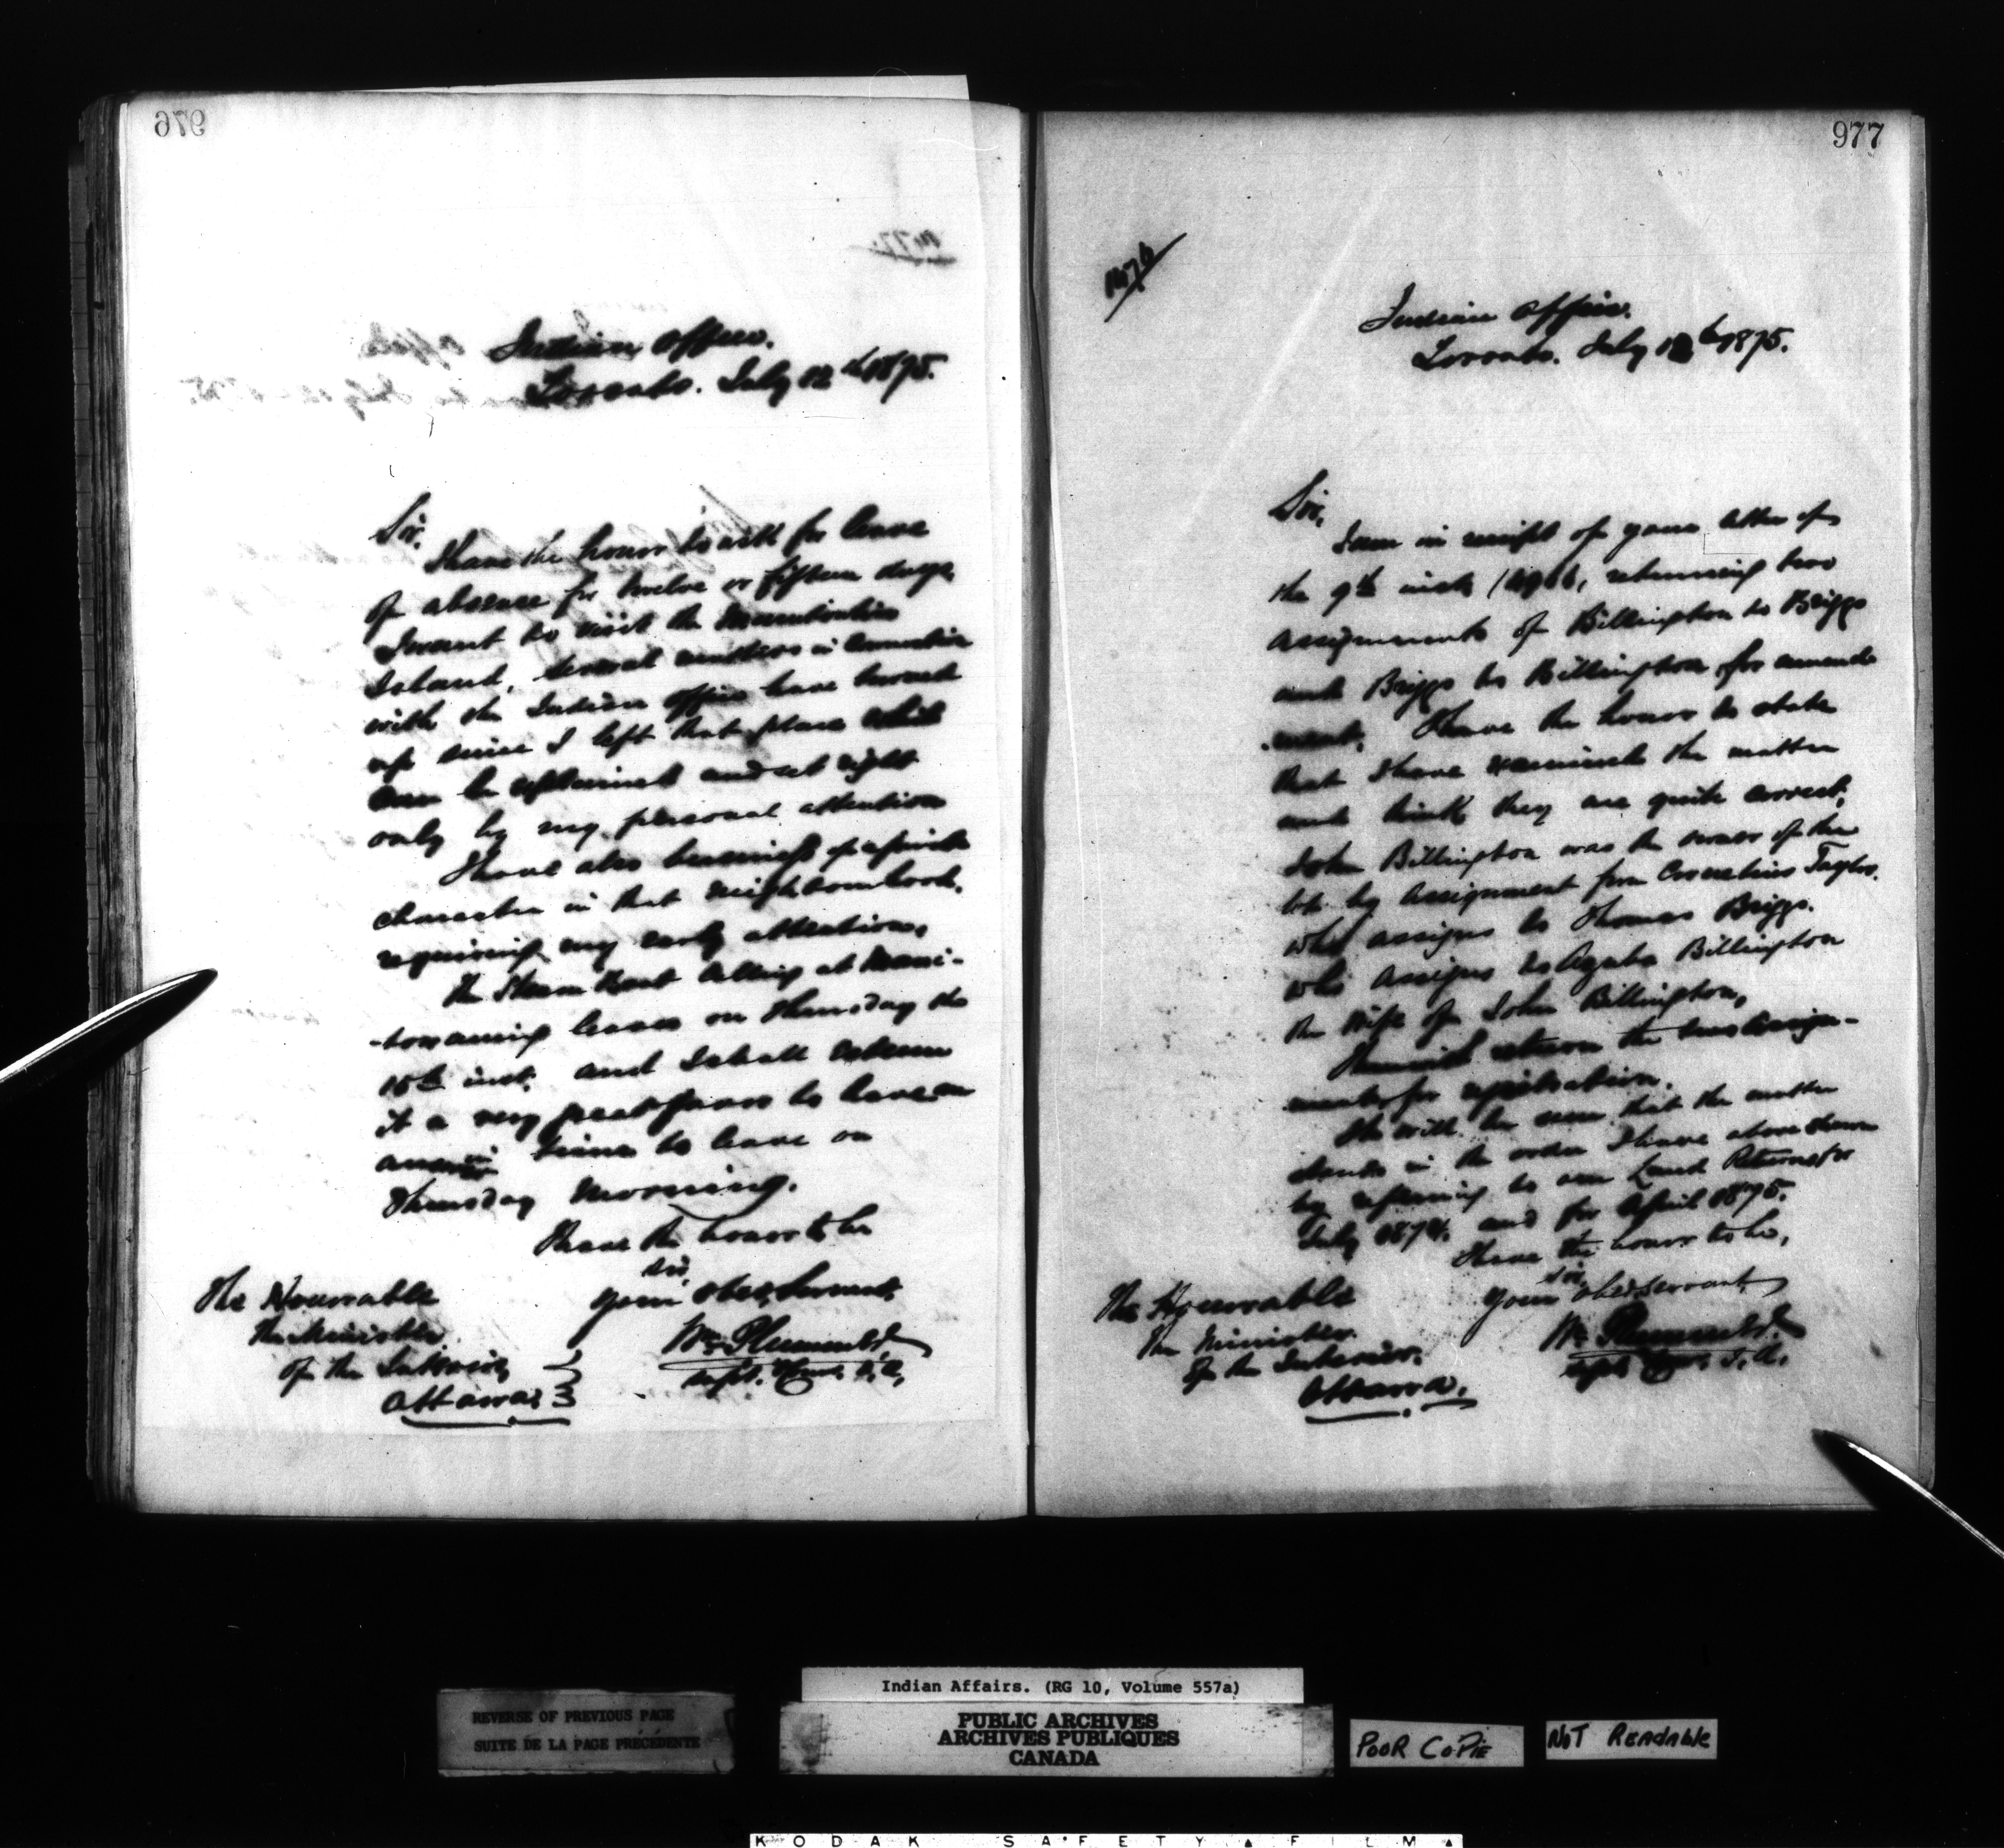 976
Indian Office.
Toronto. July 12th 1875.
Sir,
I have the honor to ask for leave
of absence for twelve or fifteen days.
I want to visit the Manitoulin
Island, several matters in connection
with the Indian Office have turned
up since I left that place which
can be explained and set right
only by my personal attention
I have also business of a private
character in that neighbourhood,
requiring my early attention,
The Steam Boat calling at Mani-
-towaning leaves on Thursday the
15th inst. and I shall esteem
it a very great favor to have an
answer in time to leave on
Thursday morning.
I have the honor to be
Sir,
Your obed. Servant,
Wm Plummer
Supt. Comr. I. A.
The Honorable
The Minister
of the Interior,
Ottawa
977
Indian Office.
Toronto. July 12th 1875.
Sir,
I am in receipt of your letter of
the 9th inst, returning two
assignments of Billington to Briggs
and Briggs to Billington for amend
ment. I have the honor to state
that I have examined the matter
and think they are quite correct,
John Billington was the owner of the
lot by assignment from Cornelius Taylor,
who assigns to Thomas Briggs.
who assigns to Billington
the wife of John Billington,
I herewith return the two Assign-
ments for registration.
It will be seen that the matter
stands in the order I have above shown
by referring to our Land Returns for
July 1874. and for April 1875.
I have the honor to be,
Sir,
Your obed servant,
Wm Plummer
Supt Comr. I. A.
The Honorable
The Minister
Of the Interior.
Ottawa.
REVERSE OF PREVIOUS PAGE
SUITE DE LA PAGE PRÉCÉDENTE
Indian Affairs. (RG 10, Volume 557a)
PUBLIC ARCHIVES
ARCHIVES PUBLIQUES
CANADA
POOR COPIE
NOT READABLE
KODAK SAFETY FILM